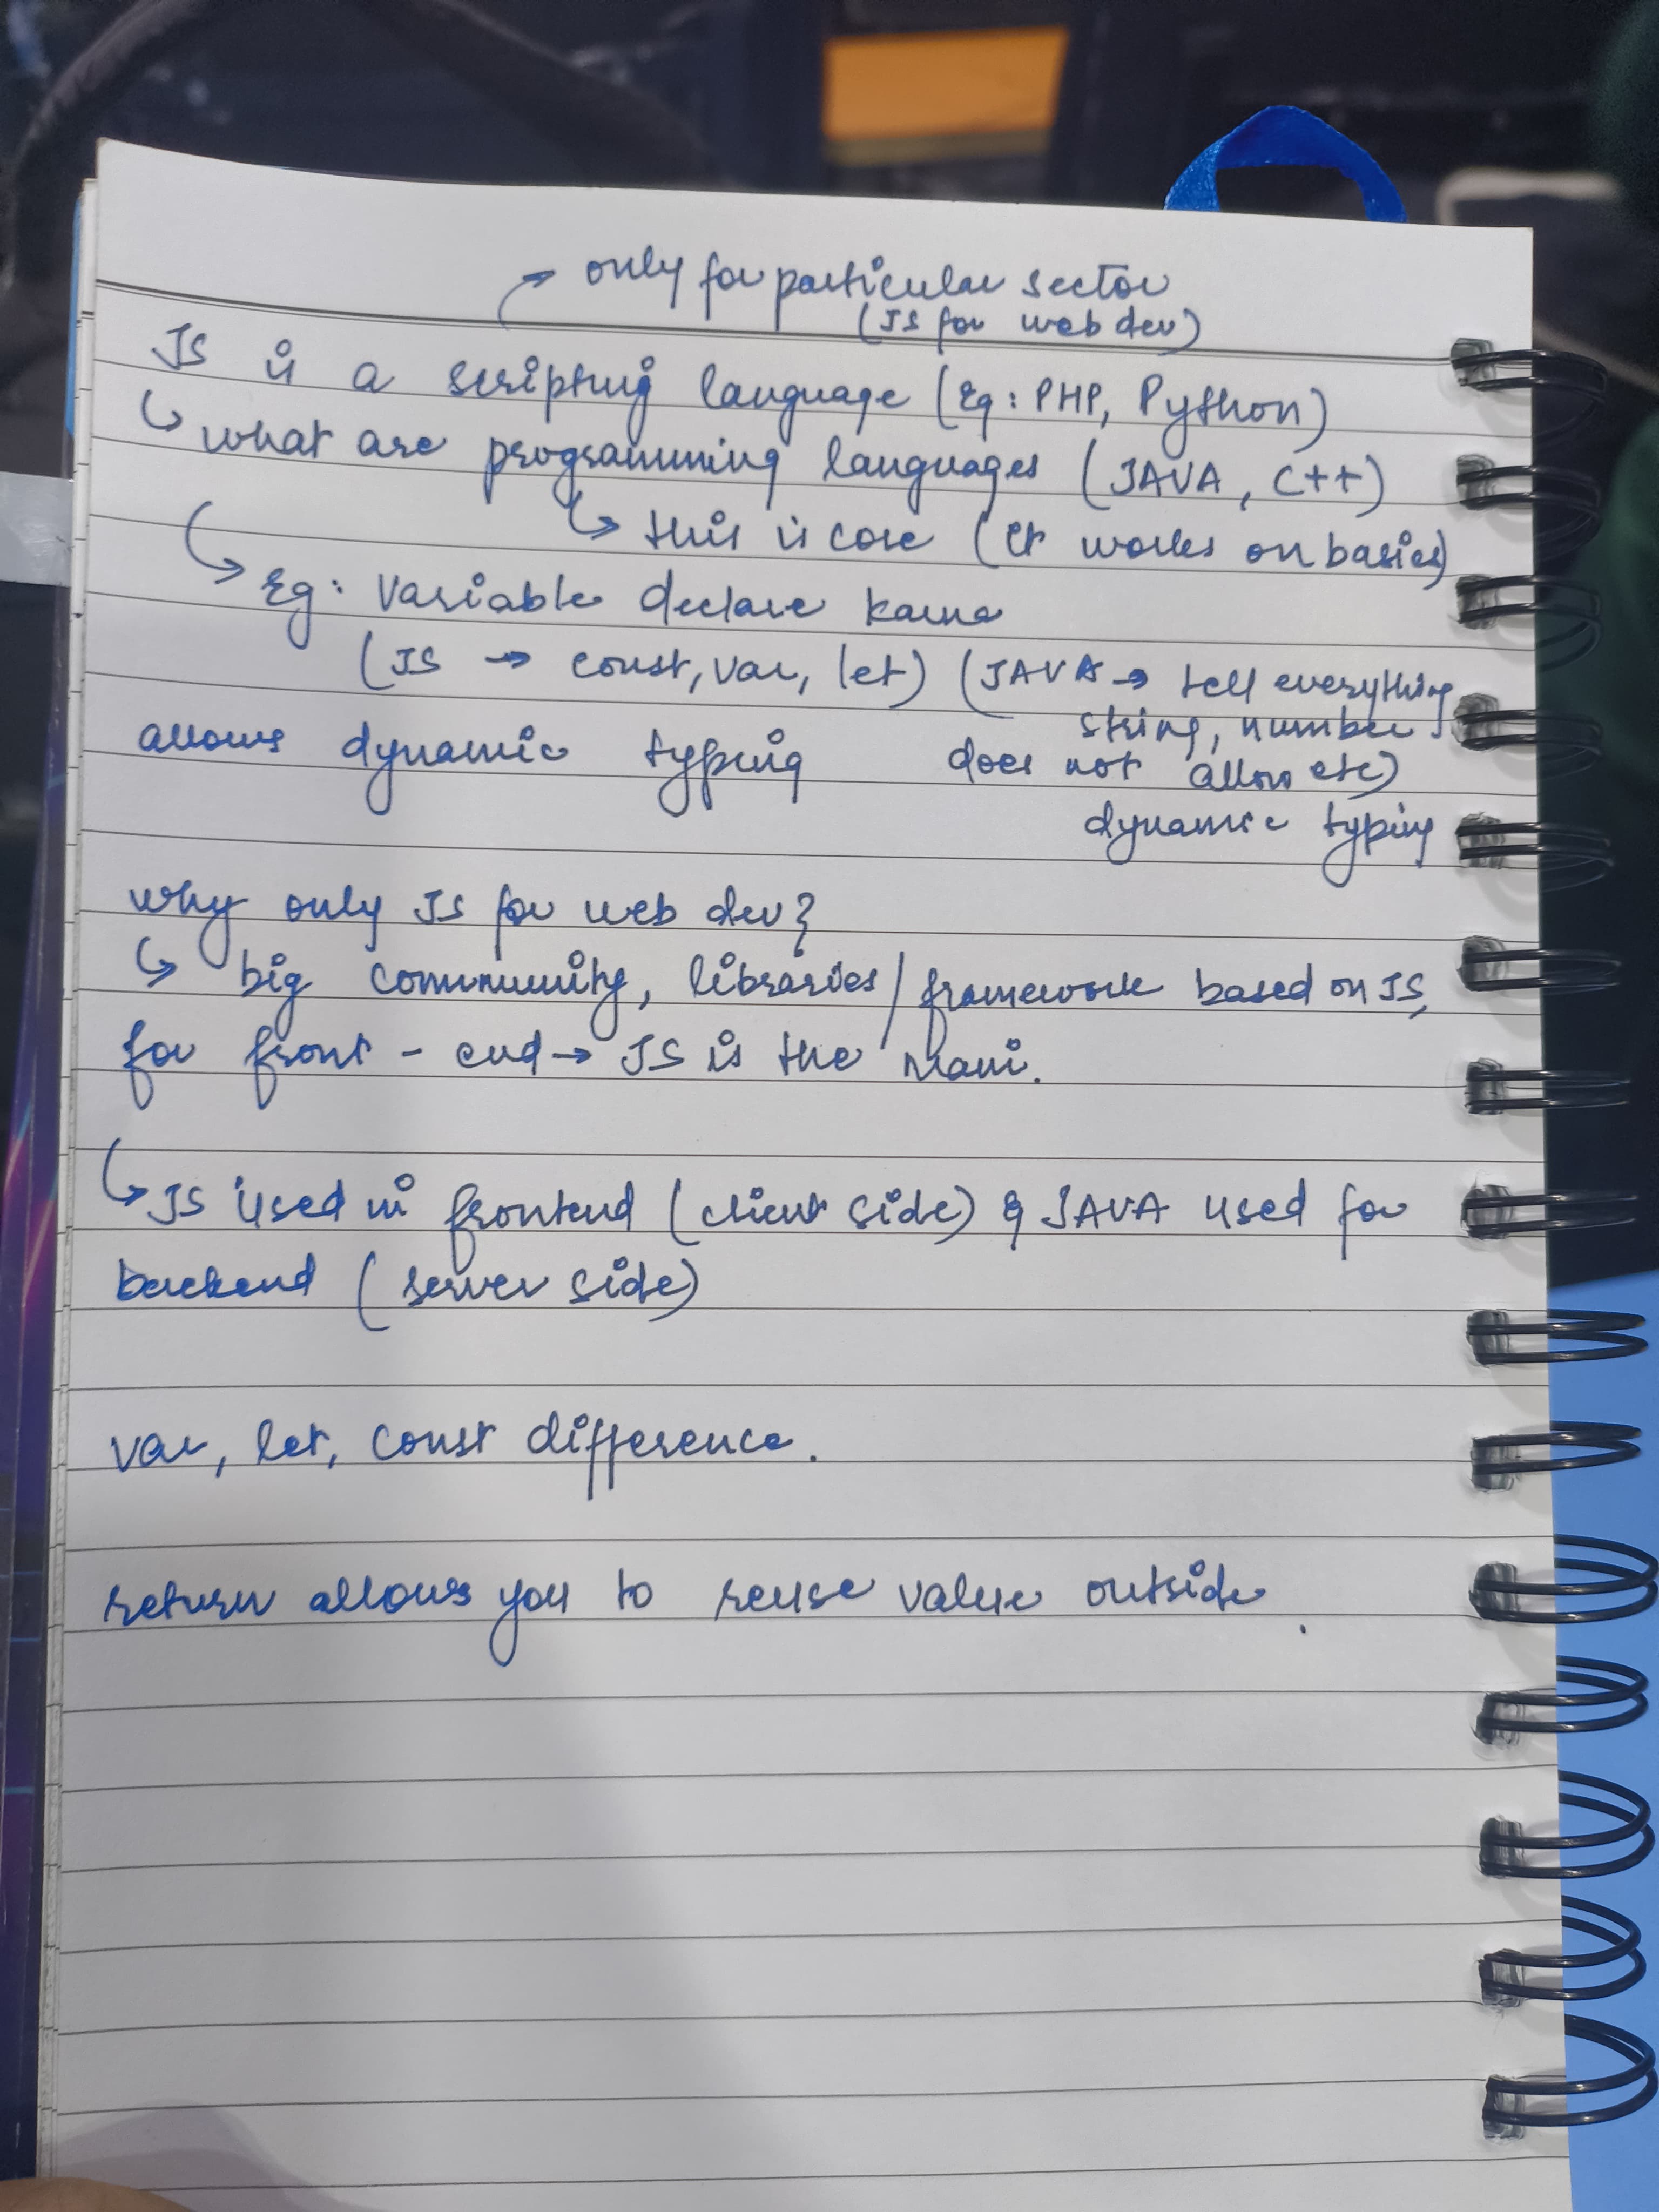 only for particular sector
(JS for web dev)
JS is a scripting language (Eg: PHP, Python)
↳ what are programming languages (JAVA, C++)
↳ this is core (it works on basics)
↳ Eg: Variable declare karna
(JS → const, var, let) (JAVA → tell everything
string, number
allows dynamic typing does not allow etc)
dynamic typing
why only JS for web dev?
↳ big community, libraries/framework based on JS,
for front-end → JS is the main.
↳ JS used in frontend (client side) & JAVA used for
backend (server side)
var, let, const difference.
return allows you to reuse value outside.